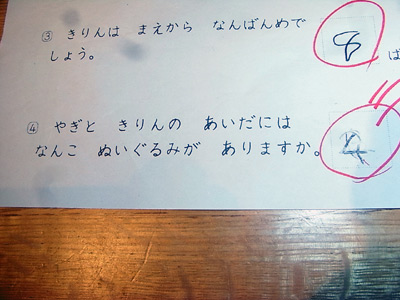 ③ きりんは まえから なんばんめで 8 ば
しょう。
④ やぎと きりんの あいだには
なんこ ぬいぐるみが ありますか。 4